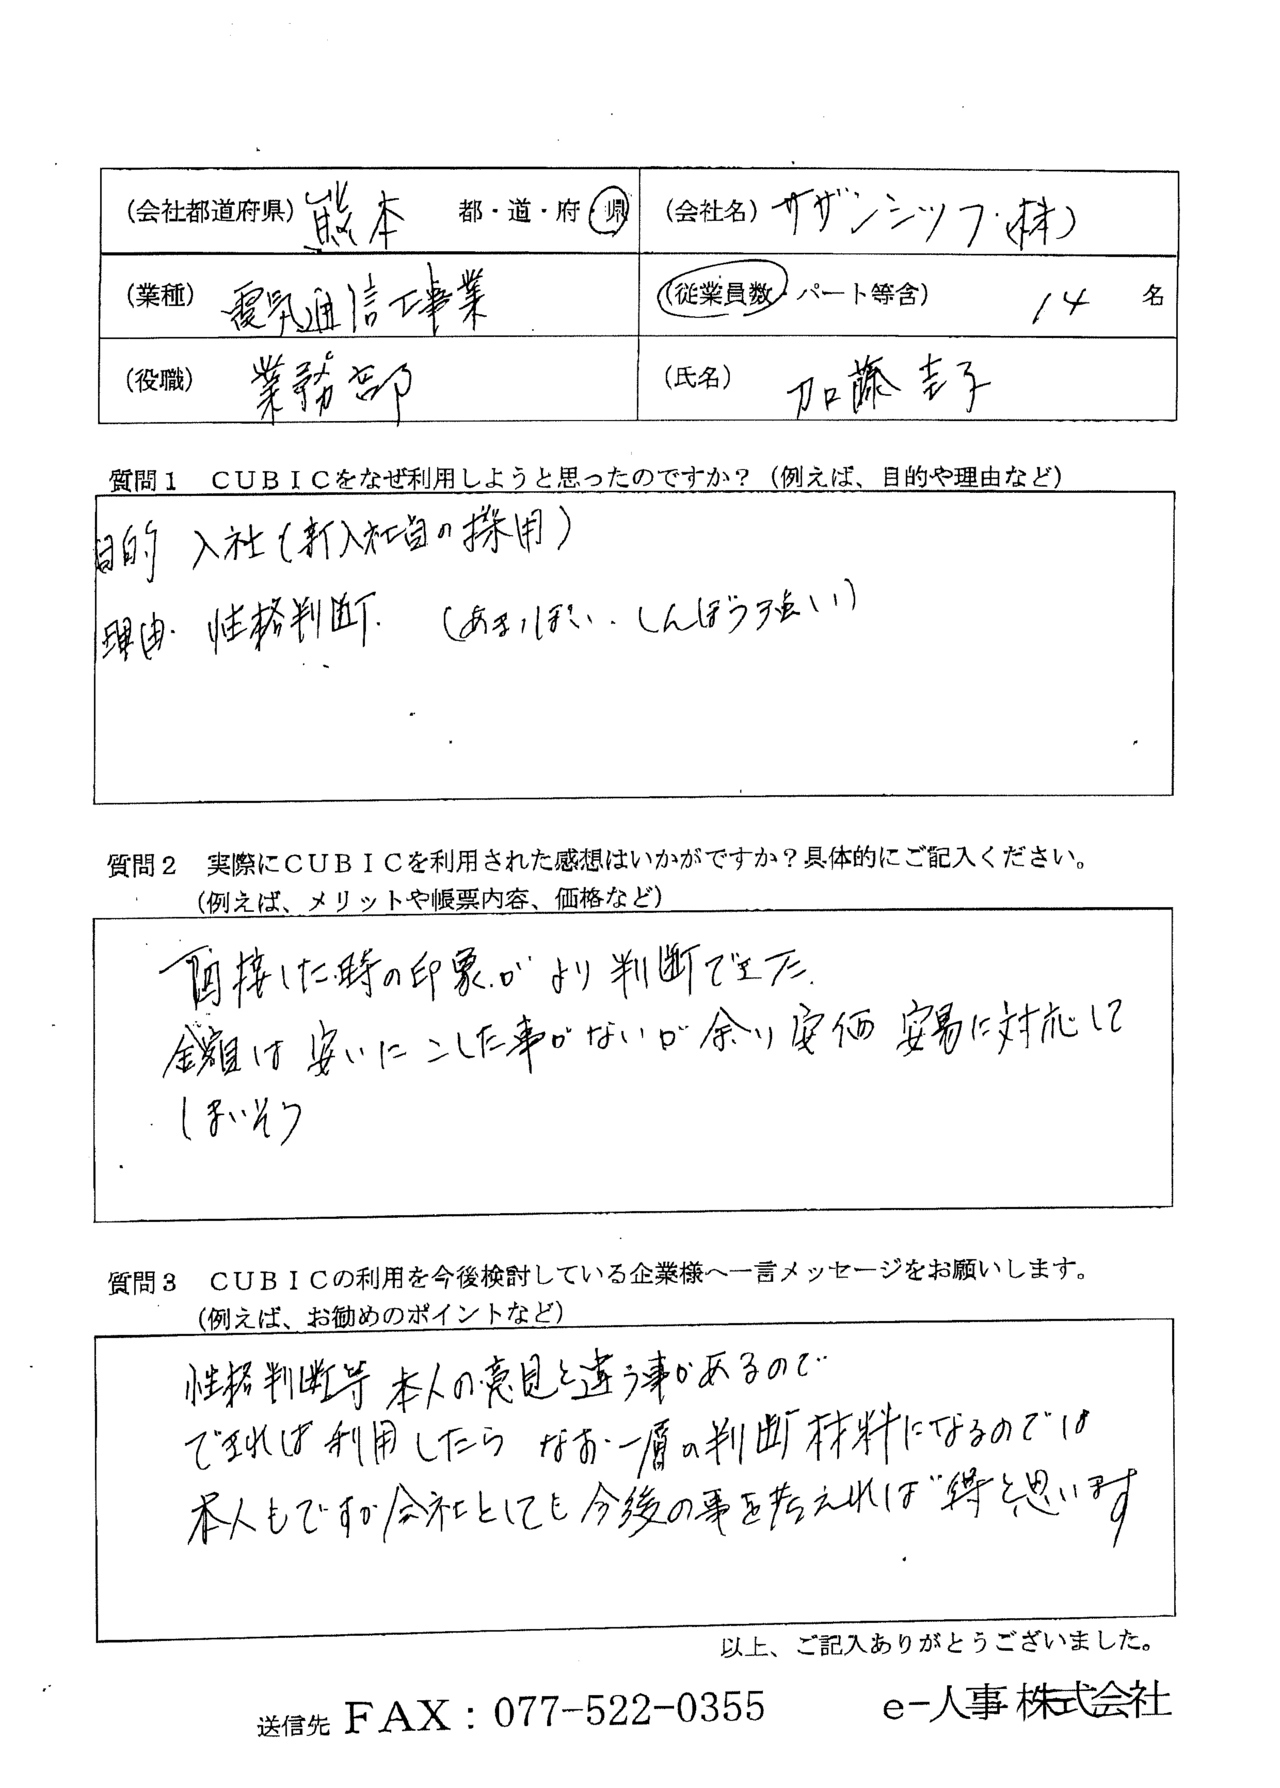 (会社都道府県) 熊本 都・道・府・県 (会社名) サザンシップ(株)
(業種) 電気通信工事業 (従業員数・パート等含) 14 名
(役職) 業務部 (氏名) 加藤 圭子
質問1 CUBICをなぜ利用しようと思ったのですか？(例えば、目的や理由など)
目的 入社(新入社員の採用)
理由 性格判断 (あきっぽい・しんぼう強い)
質問2 実際にCUBICを利用された感想はいかがですか？具体的にご記入ください。
(例えば、メリットや帳票内容、価格など)
面接した時の印象がより判断できた.
金額は安いにこした事がないが余り安価 安易に対応して
しまいそう
質問3 CUBICの利用を今後検討している企業様へ一言メッセージをお願いします。
(例えば、お勧めのポイントなど)
性格判断等 本人の意見と違う事があるので
できれば利用したら なお一層の判断材料になるのでは
本人もですが会社としても今後の事を考えれば得と思います
以上、ご記入ありがとうございました。
送信先 FAX：077-522-0355 e-人事 株式会社